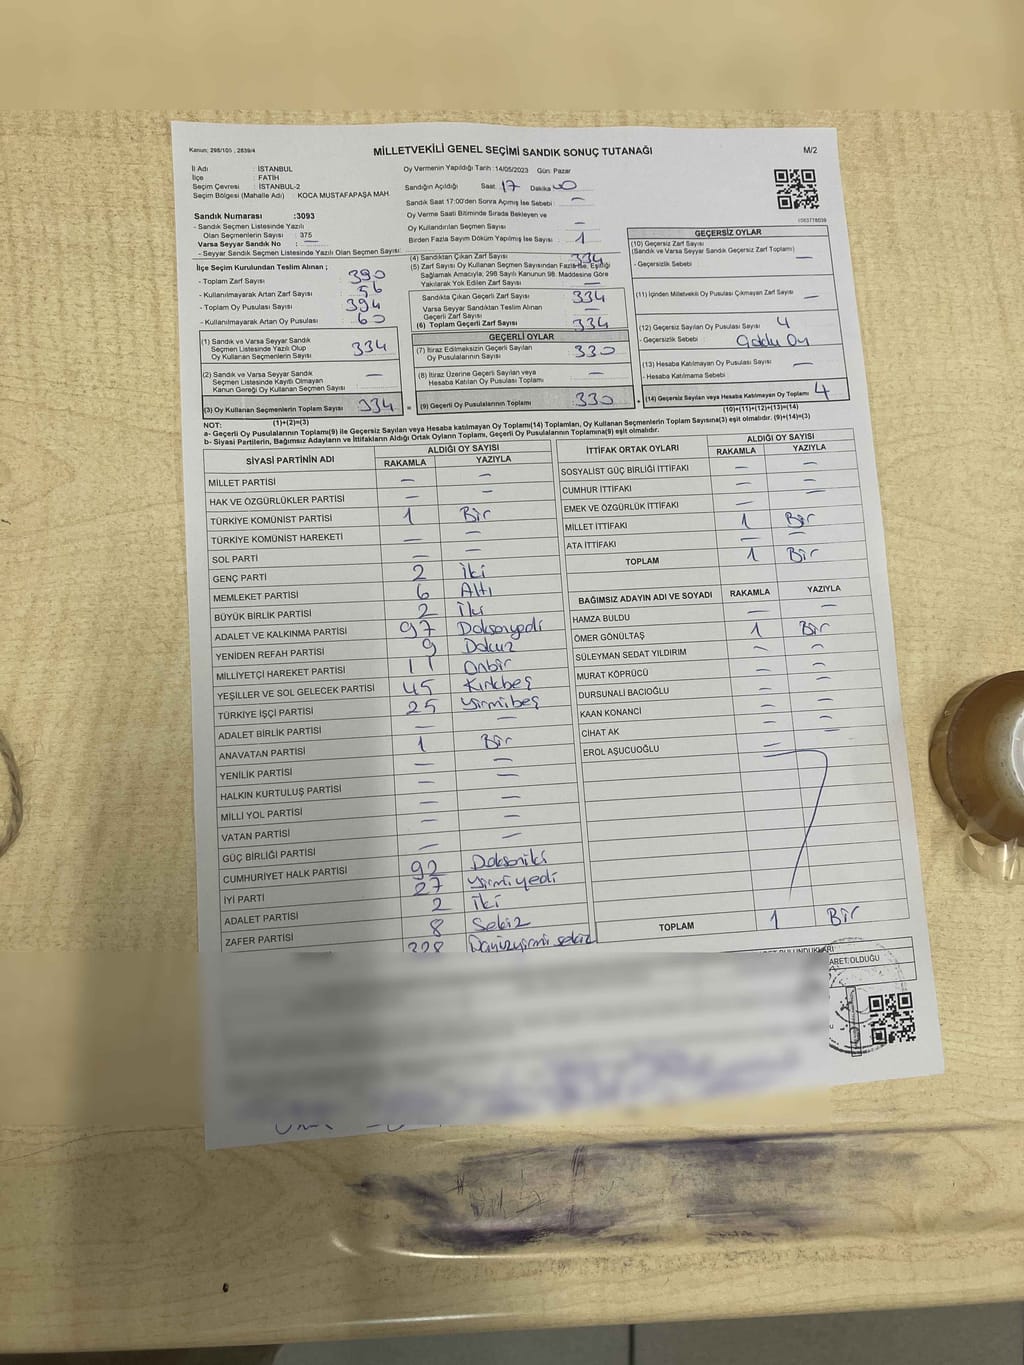 Kanun: 298/105 , 2839/4
MİLLETVEKİLİ GENEL SEÇİMİ SANDIK SONUÇ TUTANAĞI
M/2
İl Adı : İSTANBUL
İlçe : FATİH
Seçim Çevresi : İSTANBUL-2
Seçim Bölgesi (Mahalle Adı) : KOCA MUSTAFAPAŞA MAH.
Oy Vermenin Yapıldığı Tarih : 14/05/2023 Gün: Pazar
Sandığın Açıldığı Saat 17 Dakika 00
Sandık Saat 17:00'den Sonra Açılmış İse Sebebi : —
Oy Verme Saati Bitiminde Sırada Bekleyen ve
Oy Kullandırılan Seçmen Sayısı : —
Birden Fazla Sayım Döküm Yapılmış İse Sayısı : 1
Sandık Numarası :3093
- Sandık Seçmen Listesinde Yazılı
Olan Seçmenlerin Sayısı : 375
Varsa Seyyar Sandık No : —
- Seyyar Sandık Seçmen Listesinde Yazılı Olan Seçmen Sayısı:
İlçe Seçim Kurulundan Teslim Alınan ;
- Toplam Zarf Sayısı : 390
- Kullanılmayarak Artan Zarf Sayısı : 56
- Toplam Oy Pusulası Sayısı : 394
- Kullanılmayarak Artan Oy Pusulası : 60
(1) Sandık ve Varsa Seyyar Sandık
Seçmen Listesinde Yazılı Olup
Oy Kullanan Seçmenlerin Sayısı : 334
(2) Sandık ve Varsa Seyyar Sandık
Seçmen Listesinde Kayıtlı Olmayan
Kanun Gereği Oy Kullanan Seçmen Sayısı : —
(3) Oy Kullanan Seçmenlerin Toplam Sayısı : 334
(1)+(2)=(3)
(4) Sandıktan Çıkan Zarf Sayısı : 334
(5) Zarf Sayısı Oy Kullanan Seçmen Sayısından Fazla ise, Eşitliği
Sağlamak Amacıyla, 298 Sayılı Kanunun 98. Maddesine Göre
Yakılarak Yok Edilen Zarf Sayısı : —
Sandıkta Çıkan Geçerli Zarf Sayısı : 334
Varsa Seyyar Sandıktan Teslim Alınan
Geçerli Zarf Sayısı : —
(6) Toplam Geçerli Zarf Sayısı : 334
GEÇERLİ OYLAR
(7) İtiraz Edilmeksizin Geçerli Sayılan
Oy Pusulalarının Sayısı : 330
(8) İtiraz Üzerine Geçerli Sayılan veya
Hesaba Katılan Oy Pusulası Toplamı : —
(9) Geçerli Oy Pusulalarının Toplamı : 330
1063778039
GEÇERSİZ OYLAR
(10) Geçersiz Zarf Sayısı
(Sandık ve Varsa Seyyar Sandık Geçersiz Zarf Toplamı)
- Geçersizlik Sebebi : —
(11) İçinden Milletvekili Oy Pusulası Çıkmayan Zarf Sayısı : —
(12) Geçersiz Sayılan Oy Pusulası Sayısı : 4
- Geçersizlik Sebebi :
(13) Hesaba Katılmayan Oy Pusulası Sayısı : —
- Hesaba Katılmama Sebebi :
(14) Geçersiz Sayılan veya Hesaba Katılmayan Oy Toplamı : 4
(10)+(11)+(12)+(13)=(14)
NOT:
a- Geçerli Oy Pusulalarının Toplamı(9) ile Geçersiz Sayılan veya Hesaba katılmayan Oy Toplamı(14) Toplamları, Oy Kullanan Seçmenlerin Toplam Sayısına(3) eşit olmalıdır. (9)+(14)=(3)
b- Siyasi Partilerin, Bağımsız Adayların ve İttifakların Aldığı Ortak Oyların Toplamı, Geçerli Oy Pusulalarının Toplamına(9) eşit olmalıdır.
SİYASİ PARTİNİN ADI ALDIĞI OY SAYISI
RAKAMLA YAZIYLA
MİLLET PARTİSİ — —
HAK VE ÖZGÜRLÜKLER PARTİSİ — —
TÜRKİYE KOMÜNİST PARTİSİ 1 Bir
TÜRKİYE KOMÜNİST HAREKETİ — —
SOL PARTİ — —
GENÇ PARTİ 2 İki
MEMLEKET PARTİSİ 6 Altı
BÜYÜK BİRLİK PARTİSİ 2 İki
ADALET VE KALKINMA PARTİSİ 97 Doksanyedi
YENİDEN REFAH PARTİSİ 9 Dokuz
MİLLİYETÇİ HAREKET PARTİSİ 11 Onbir
YEŞİLLER VE SOL GELECEK PARTİSİ 45 Kırkbeş
TÜRKİYE İŞÇİ PARTİSİ 25 Yirmibeş
ADALET BİRLİK PARTİSİ — —
ANAVATAN PARTİSİ 1 Bir
YENİLİK PARTİSİ — —
HALKIN KURTULUŞ PARTİSİ — —
MİLLİ YOL PARTİSİ — —
VATAN PARTİSİ — —
GÜÇ BİRLİĞİ PARTİSİ — —
CUMHURİYET HALK PARTİSİ 92 Doksaniki
İYİ PARTİ 27 Yirmiyedi
ADALET PARTİSİ 2 İki
ZAFER PARTİSİ 8 Sekiz
328
İTTİFAK ORTAK OYLARI ALDIĞI OY SAYISI
RAKAMLA YAZIYLA
SOSYALİST GÜÇ BİRLİĞİ İTTİFAKI — —
CUMHUR İTTİFAKI — —
EMEK VE ÖZGÜRLÜK İTTİFAKI — —
MİLLET İTTİFAKI 1 Bir
ATA İTTİFAKI — —
TOPLAM 1 Bir
BAĞIMSIZ ADAYIN ADI VE SOYADI RAKAMLA YAZIYLA
HAMZA BULDU — —
ÖMER GÖNÜLTAŞ 1 Bir
SÜLEYMAN SEDAT YILDIRIM — —
MURAT KÖPRÜCÜ — —
DURSUNALİ BACIOĞLU — —
KAAN KONANCİ — —
CİHAT AK — —
EROL AŞUCUOĞLU — —
TOPLAM 1 Bir
ARET OLDUĞU